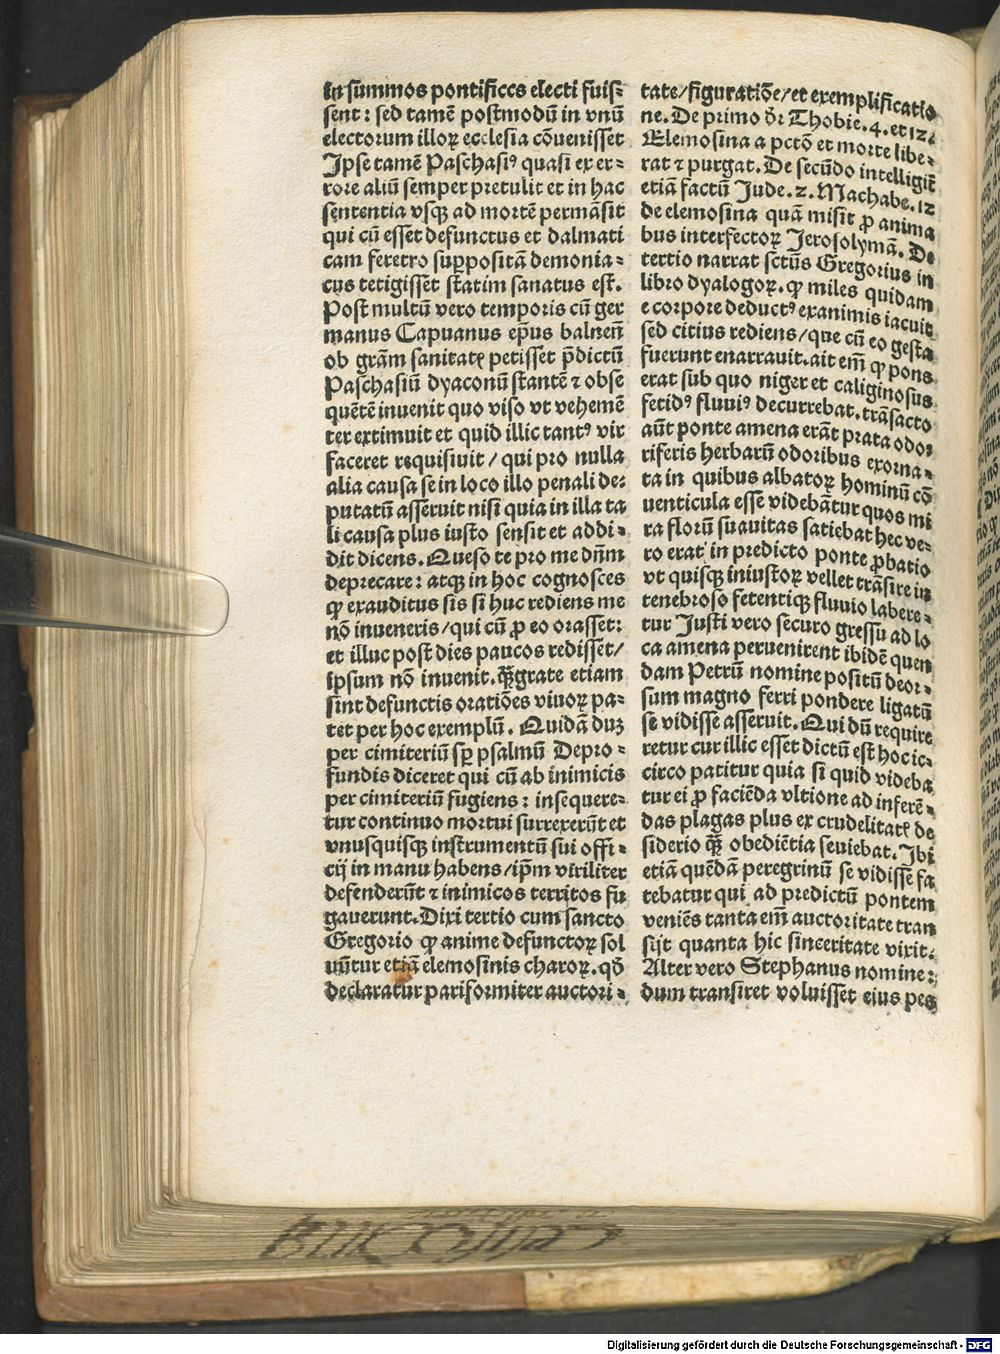 in summos pontifices electi fuis⸗
sent: sed tamē postmodū in vnū
electorum illoꝝ ecclesia cōuenisset
Ipse tamē Paschasiꝰ quasi ex er⸗
rore aliū semper pretulit et in hac
sententia vsqꝫ ad mortē permāsit
qui cū esset defunctus et dalmati
cam feretro suꝑpositā demonia⸗
cus tetigisset statim sanatus est.
Post multū vero temporis cū ger
manus Capuanus ep̄us balneū
ob gr̄am sanitatꝭ petisset p̄dictū
Paschasiū dyaconū stantē ⁊ obse
quētē inuenit quo viso vt vehemē
ter extimuit et quid illic tantꝰ vir
faceret requisiuit / qui pro nulla
alia causa se in loco illo penali de⸗
putatū asseruit nisi quia in illa ta
li causa plus iusto sensit et addi⸗
dit dicens. Queso te pro me dn̄m
deprecare: atqꝫ in hoc cognosces
ꝙ exauditus sis si huc rediens me
nō inueneris/qui cū ꝓ eo orasset:
et illuc post dies paucos redisset/
ipsum nō inuenit. q̄ꝫgrate etiam
sint defunctis oratiōes viuoꝝ pa⸗
tet per hoc exemplū. Quidā duꝫ
per cimiteriū sꝑ psalmū Depro⸗
fundis diceret qui cū ab inimicis
per cimiteriū fugiens: insequere⸗
tur continuo mortui surrexerūt et
vnusquisqꝫ instrumentū sui offi⸗
cij in manu habens/ip̄m viriliter
defenderūt ⁊ inimicos territos fu
gauerunt. Dixi tertio cum sancto
Gregorio ꝙ anime defunctoꝝ sol
uūtur etiā elemosinis charoꝝ. qđ
declaratur pariformiter auctori⸗
tate/figuratiōe/et exemplificatio
ne. De primo dr̄ Thobie. 4. et 12.
Elemosina a pctō et morte libe⸗
rat ⁊ purgat. De secūdo intelligit̄
etiā factū Jude. 2. Machabe. 12
de elemosina quā misit ꝓ anima
bus interfectoꝝ Jerosolymā. De
tertio narrat sctūs Gregorius in
libro dyalogoꝝ. ꝙ miles quidam
e corpore deductꝰ exanimis iacuit
sed citius rediens/que cū eo gesta
fuerunt enarrauit. ait em̄ ꝙ pons
erat sub quo niger et caliginosus
fetidꝰ fluuiꝰ decurrebat. trāsacto
aūt ponte amena erāt prata odo⸗
riferis herbarū odoribus exorna⸗
ta in quibus albatoꝝ hominū cō
uenticula esse videbātur quos mi
ra florū suauitas satiebat hec ve⸗
ro erat in predicto ponte ꝓbatio
vt quisqꝫ iniustoꝝ vellet trāsire in
tenebroso fetentiqꝫ fluuio labere⸗
tur Justi vero securo gressu ad lo
ca amena peruenirent ibidē quen
dam Petrū nomine positū deor⸗
sum magno ferri pondere ligatū
se vidisse asseruit. Qui dū require
retur cur illic esset dictū est hoc ic⸗
circo patitur quia si quid videba
tur ei ꝓ faciēda vltione ad inferē⸗
das plagas plus ex crudelitatꝭ de
siderio q̄ꝫ obediētia seuiebat. Ibi
etiā quēdā peregrinū se vidisse fa
tebatur qui ad predictū pontem
veniēs tanta em̄ auctoritate tran
sijt quanta hic sinceritate vixit.
Alter vero Stephanus nomine:
dum transiret voluisset eius pes
Digitalisierung gefördert durch die Deutsche Forschungsgemeinschaft - DFG